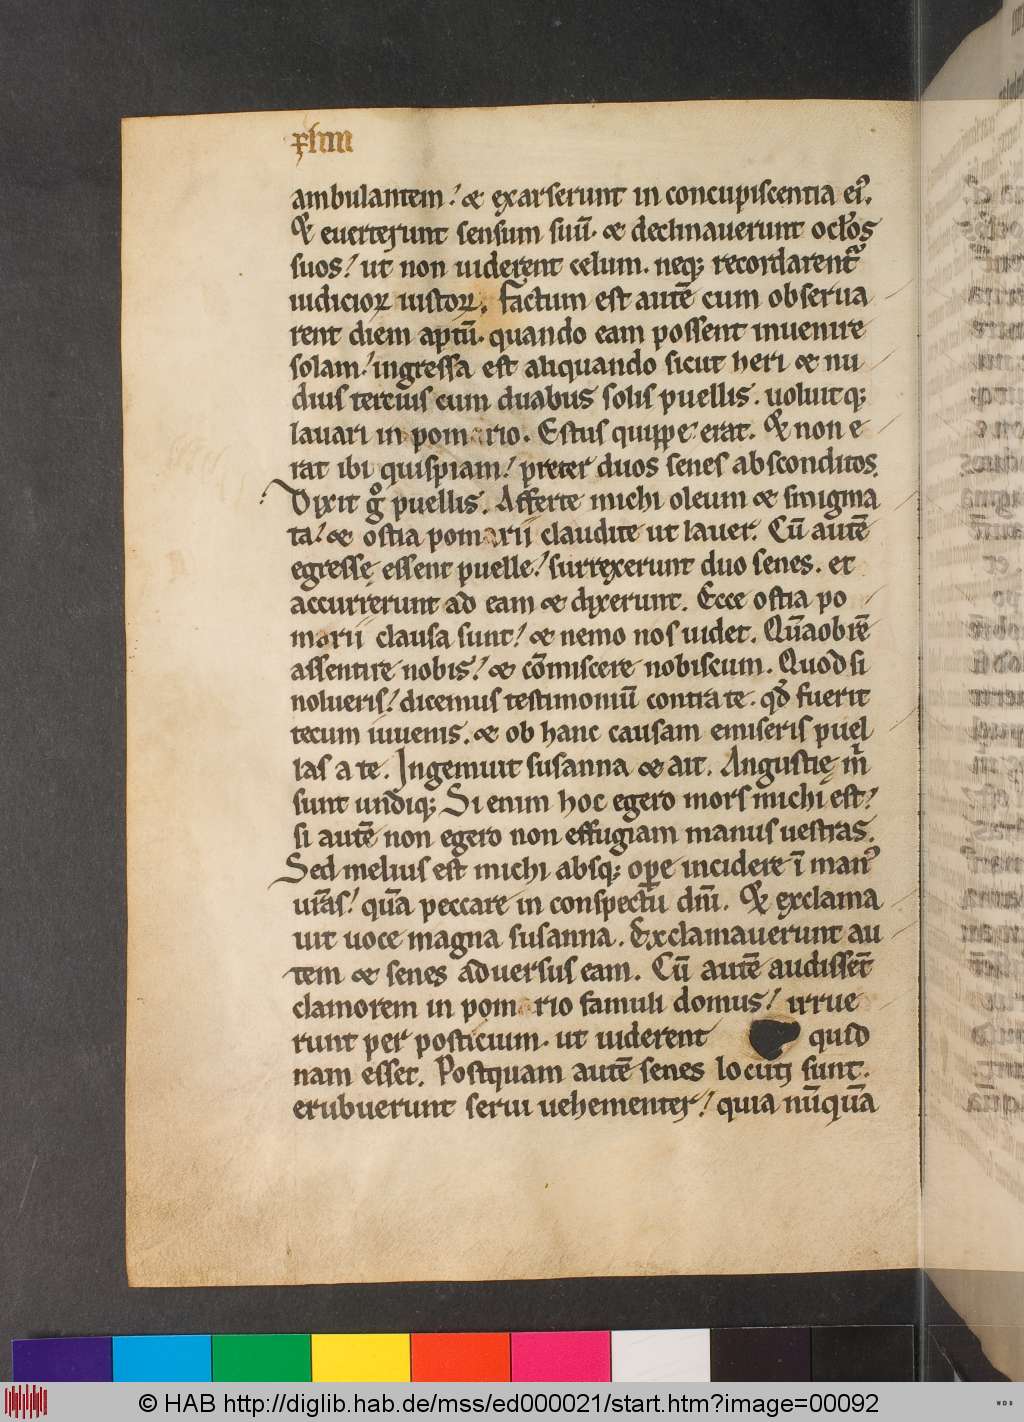 xliiii
ambulantem! & exarserunt in concupiscentia ei᾽.
Et euerterunt sensum suū. & declinauerunt oclꝰos
suos! ut non uiderent celum. neq; recordarent᷑
iudicioꝝ iustoꝝ. Factum est autē cum obserua
rent diem aptū. quando eam possent inuenire
solam! ingressa est aliquando sicut heri & nu
dius tercius cum duabus solis puellis. uoluitq;
lauari in pomario. Estus quippe erat. Et non e
rat ibi quispiam! preter duos senes absconditos.
Dixit gͦ puellis. Afferte michi oleum & smigma
ta! & ostia pomarii claudite ut lauer. Cū autē
egresse essent puelle! surrexerunt duo senes. et
accurrerunt ad eam & dixerunt. Ecce ostia po
marii clausa sunt! & nemo nos uidet. Quāobrē
assentire nobis! & cōmiscere nobiscum. Quod si
nolueris! dicemus testimoniū contra te. qđ fuerit
tecum iuuenis. & ob hanc causam emiseris puel
las a te. Ingemuit susanna & ait. Angustię m̄
sunt undiq; Si enim hoc egero mors michi est!
si autē non egero non effugiam manus uestras.
Sed melius est michi absq; ope incidere ī man᾽
ur̄as! quā peccare in conspectū dn̄i. Et exclama
uit uoce magna susanna. Exclamauerunt au
tem & senes aduersus eam. Cū autē audissēt
clamorem in pomario famuli domus! irrue
runt per posticium. ut uiderent quid
nam esset. Postquam autē senes locuti sunt.
erubuerunt serui uehementer! quia nūquā
© HAB http://diglib.hab.de/mss/ed000021/start.htm?image=00092